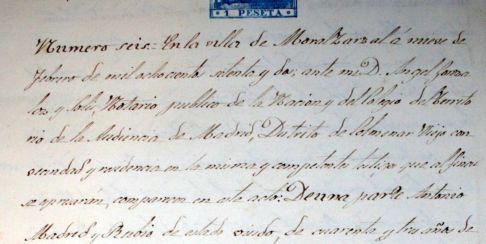 1 PESETA
Numero seis: En la villa de Moralzarzal á nueve de
Febrero de mil ochocientos setenta y dos: ante mi D. Angel
y Solis, Notario publico de la Nacion y del Colegio del Territo
rio de la Audiencia de Madrid, Distrito de Colmenar Viejo con
vecindad y residencia en la misma y competentes testigos que al final
se espresaran, comparecen en este acto: De una parte Antonio
Madrid y Rubio de estado viudo, de cuarenta y tres años de